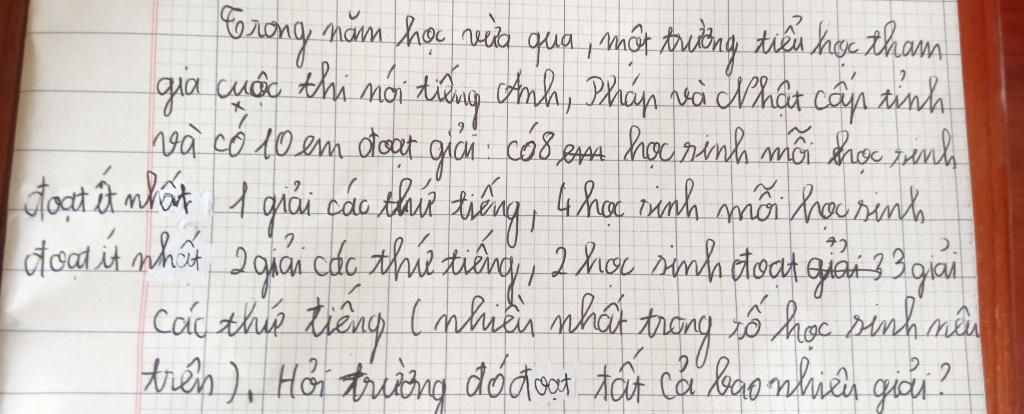 Trong năm học vừa qua, một trường tiểu học tham
gia cuộc thi nói tiếng Anh, Pháp và Nhật cấp tỉnh
và có 10 em đoạt giải: có 8 em học sinh mỗi học sinh
đoạt ít nhất 1 giải các thứ tiếng, 4 học sinh mỗi học sinh
đoạt ít nhất 2 giải các thứ tiếng, 2 học sinh đoạt giải 3 3 giải
các thứ tiếng (nhiều nhất trong số học sinh nêu
trên). Hỏi trường đó đoạt tất cả bao nhiêu giải?